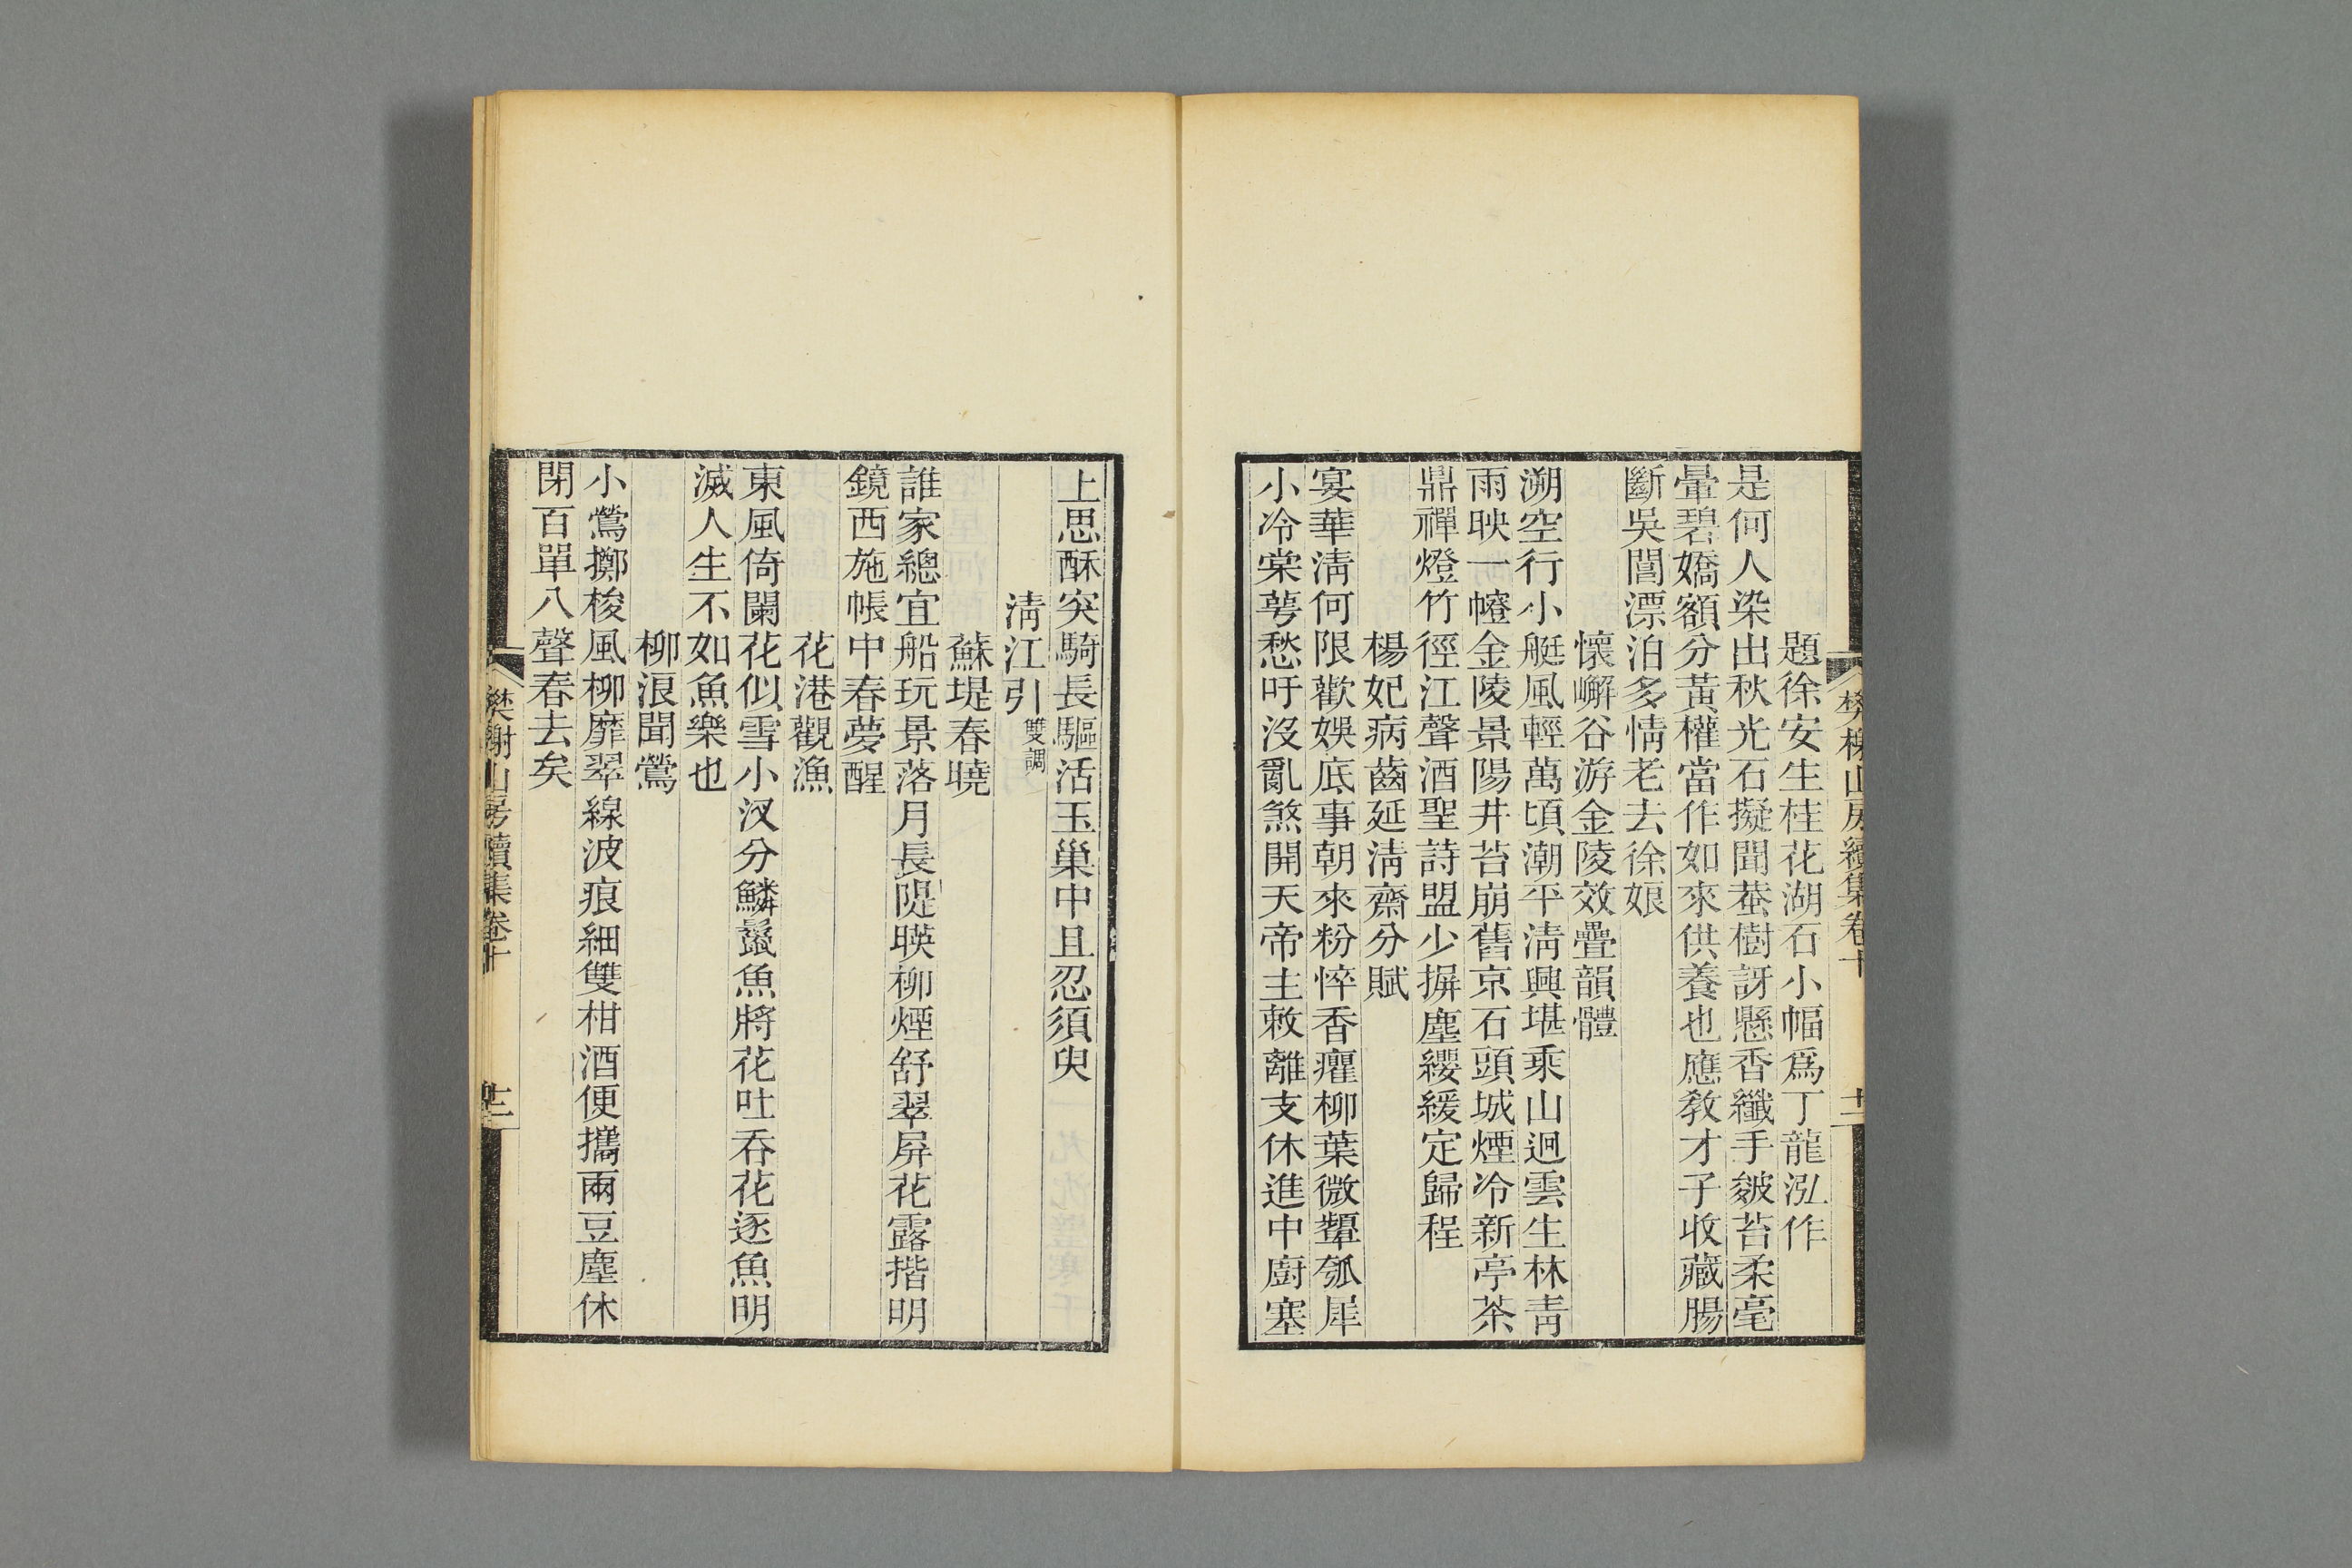 樊榭山房續集卷十
十二
題徐安生桂花湖石小幅爲丁龍泓作
是何人染出秋光石擬聞蔡樹訝懸香纖手皴苔柔毫
暈碧嬌額分黃權當作如來供養也應敎才子收藏腸
斷吳閶漂泊多情老去徐娘
懷嶰谷游金陵效疊韻體
溯空行小艇風輕萬頃潮平淸興堪乘山迥雲生林靑
雨映一幢金陵景陽井苔崩舊京石頭城煙冷新亭茶
鼎禪燈竹徑江聲酒聖詩盟少摒塵纓緩定歸程
楊妃病齒延淸齋分賦
宴華淸何限歡娛底事朝來粉悴香癯柳葉微顰瓠犀
小冷棠萼愁吁沒亂煞開天帝主敕離支休進中廚塞
上思酥突騎長驅活玉巢中且忍須臾
淸江引雙調
蘇堤春曉
誰家總宜船玩景落月長隄暎柳煙舒翠屏花露揩明
鏡西施帳中春夢醒
花港觀漁
東風倚闌花似雪小汊分鱗鬣魚將花吐吞花逐魚明
滅人生不如魚樂也
柳浪聞鶯
小鶯擲梭風柳靡翠線波痕細雙柑酒便攜兩豆塵休
閉百單八聲春去矣
樊榭山房續集卷十